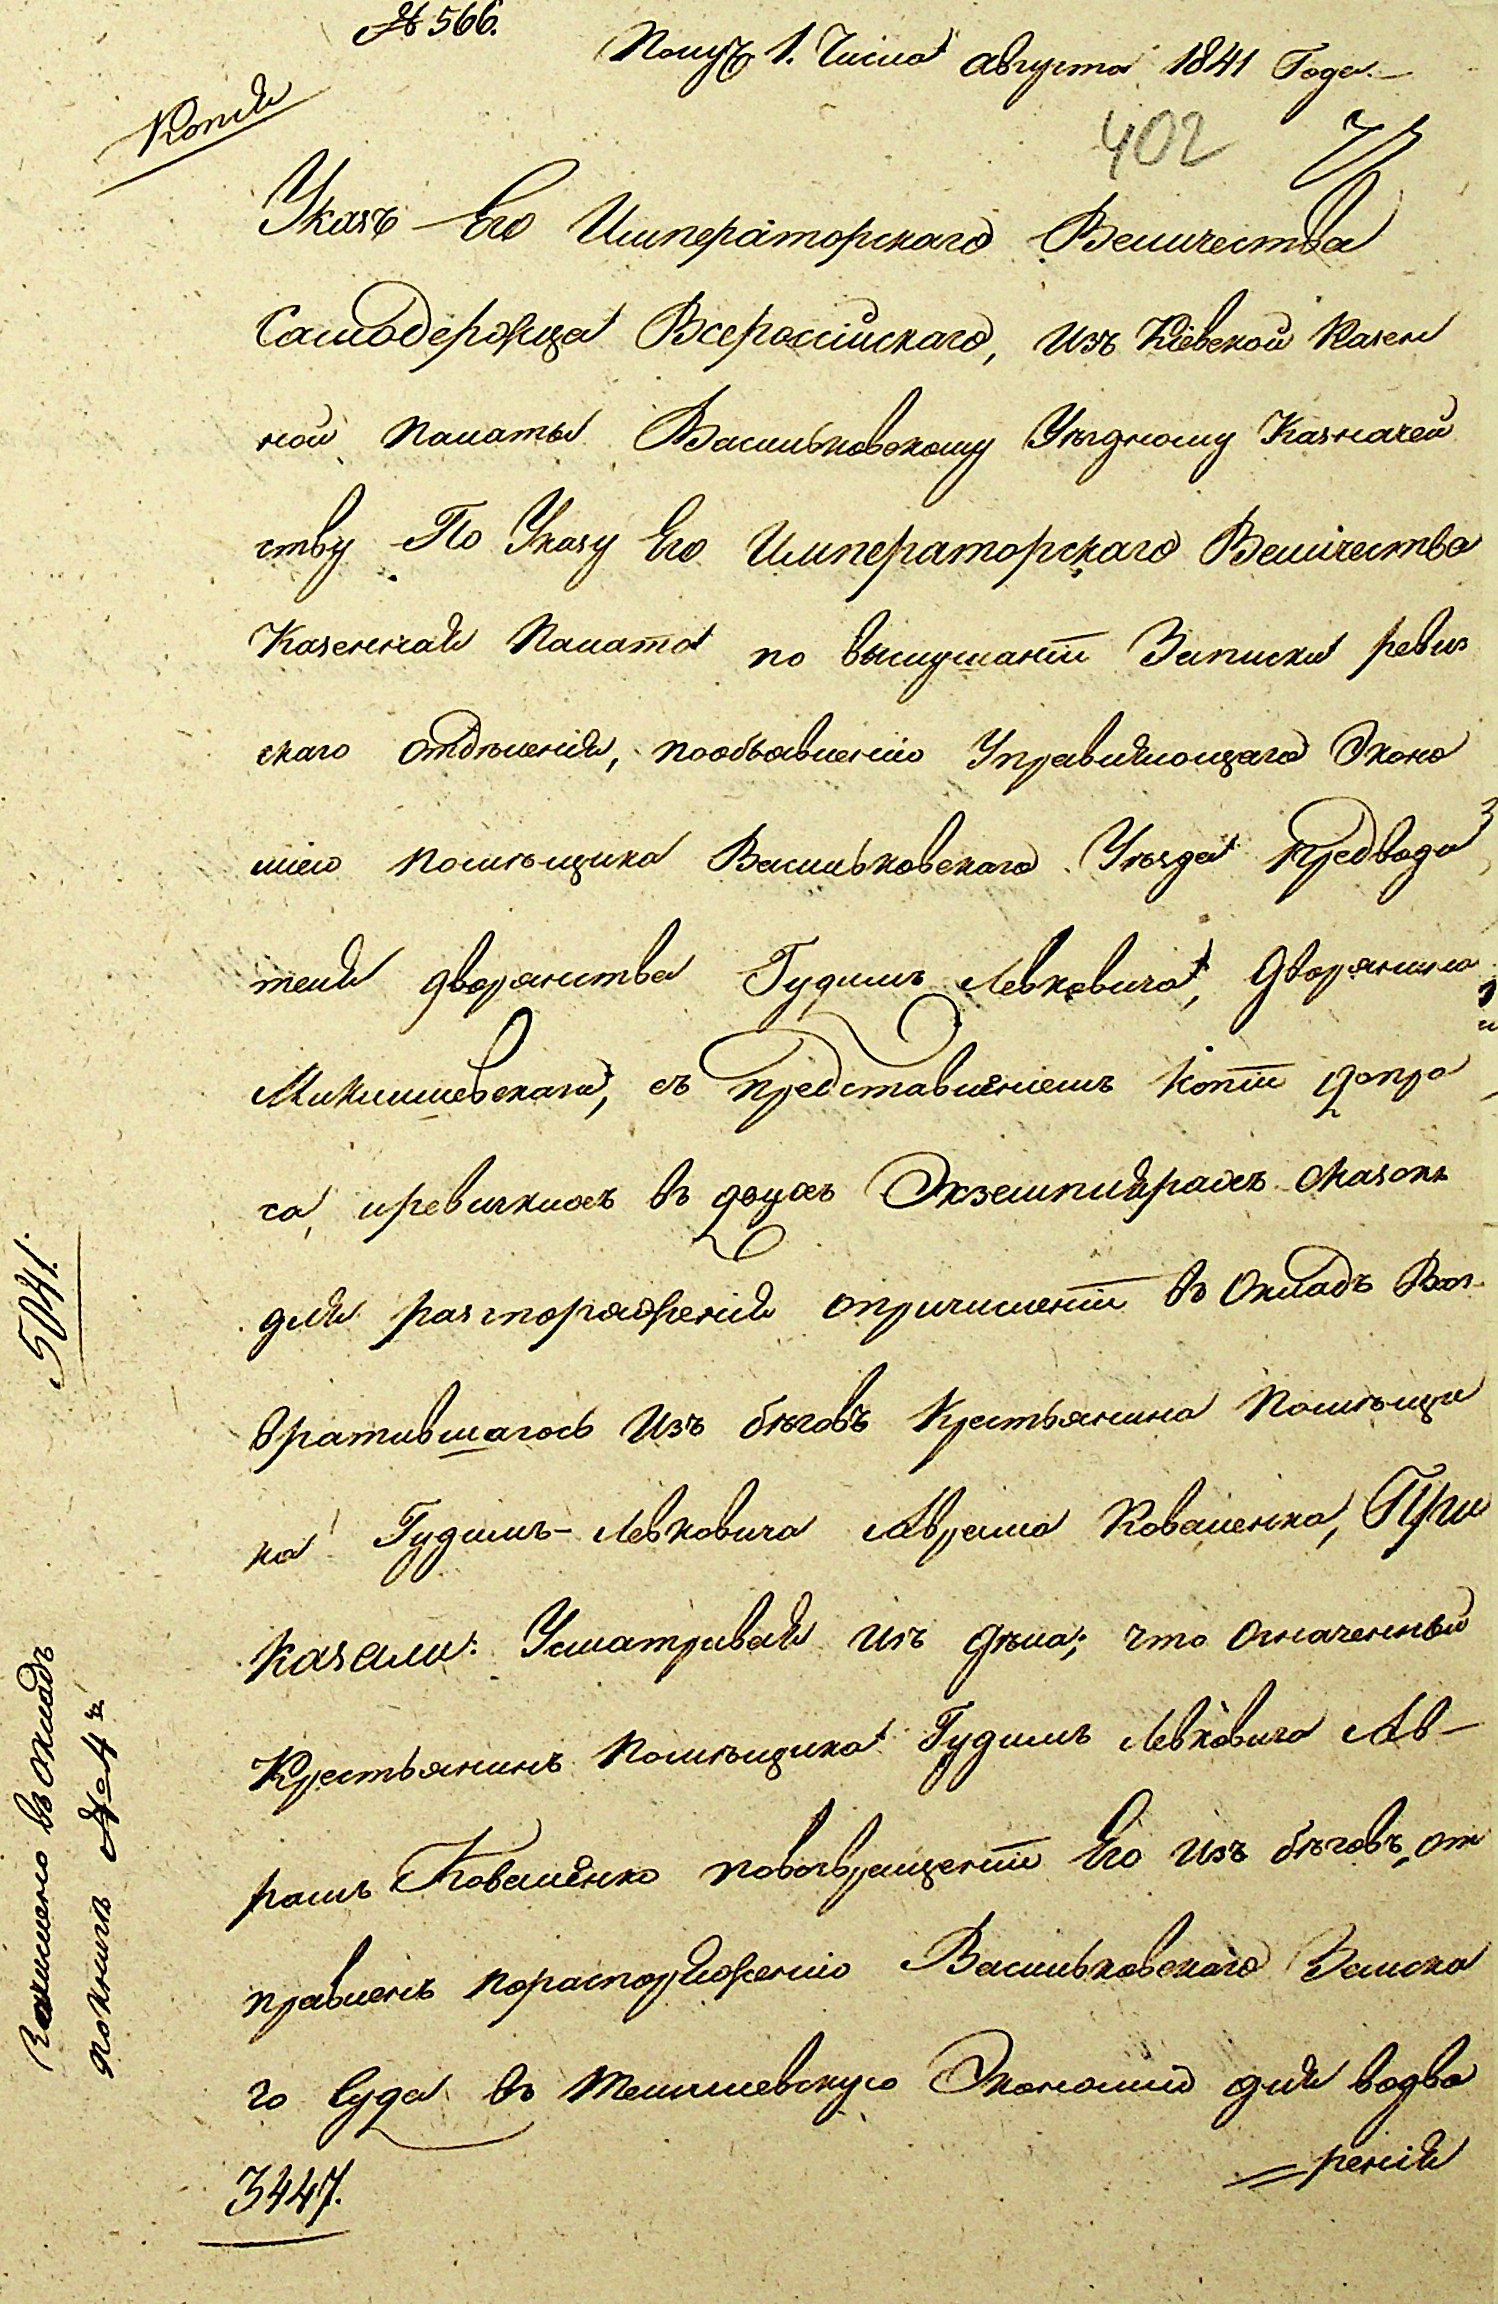 № 566.
Получ 1. Числа августа 1841 Года.
Копия
402
Указъ Его Императорскаго Величества
Самодержца Всероссійскаго, изъ Кіевской Казен
ной Палаты Васильковскому Уѣздному Казначей
ству По Указу Его Императорскаго Величества
Казенная Палата по выслушаніи Записки ревиз
скаго отдѣленія, пообъявленію Управляющаго Эконо
міею помѣщика Васильковскаго Уѣзда Предводи
теля дворянства Гудимъ Левковича, дворянина
съ представленіемъ копіи допро
са, иревизкихъ въ двухъ Экземплярахъ сказокъ
для разпоряженія опричисленіи въ Окладъ Воз
вратившагось изъ бѣговъ Крестьянина Помѣщи
ка Гудимъ-Левковича Аврама Коваленка, При
казали: Усматривая изъ дѣла; что означенный
Крестьянинъ помѣщика Гудимъ Левковича Ав-
рамъ Коваленко повозвращеніи Его изъ бѣговъ, от
правленъ пораспоряженію Васильковскаго Земска
го Суда въ Экономію для водво
=реніи
3447.
5041.
Зачислено въ окладъ
покнигѣ № 4й